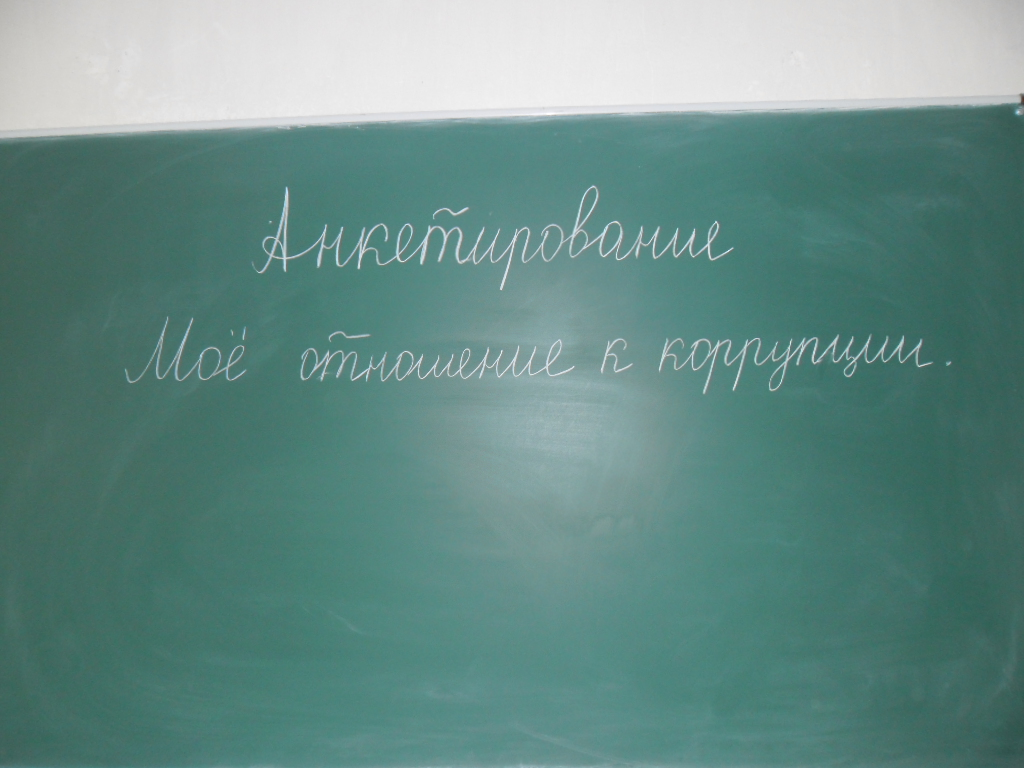 Анкетирование
Моё отношение к коррупции.